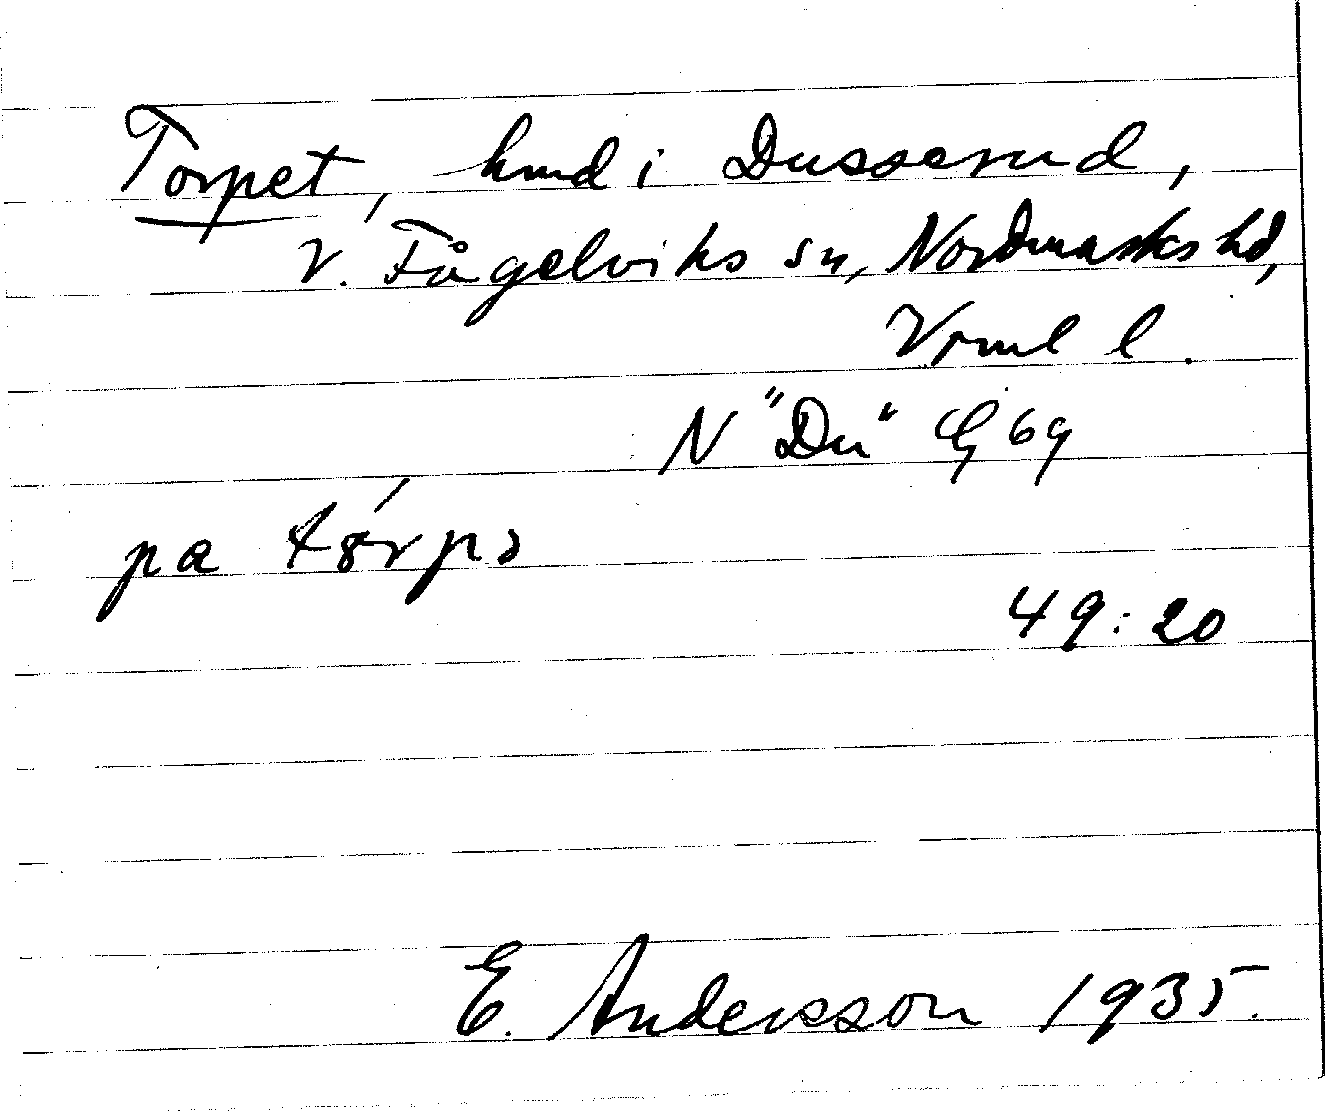 Torpet, hmd i Dusserud,
V. Fågelviks sn, Nordmarks hd,
Vrml l.
N "Du" G 69
pa
49:20
E. Andersson 1935.